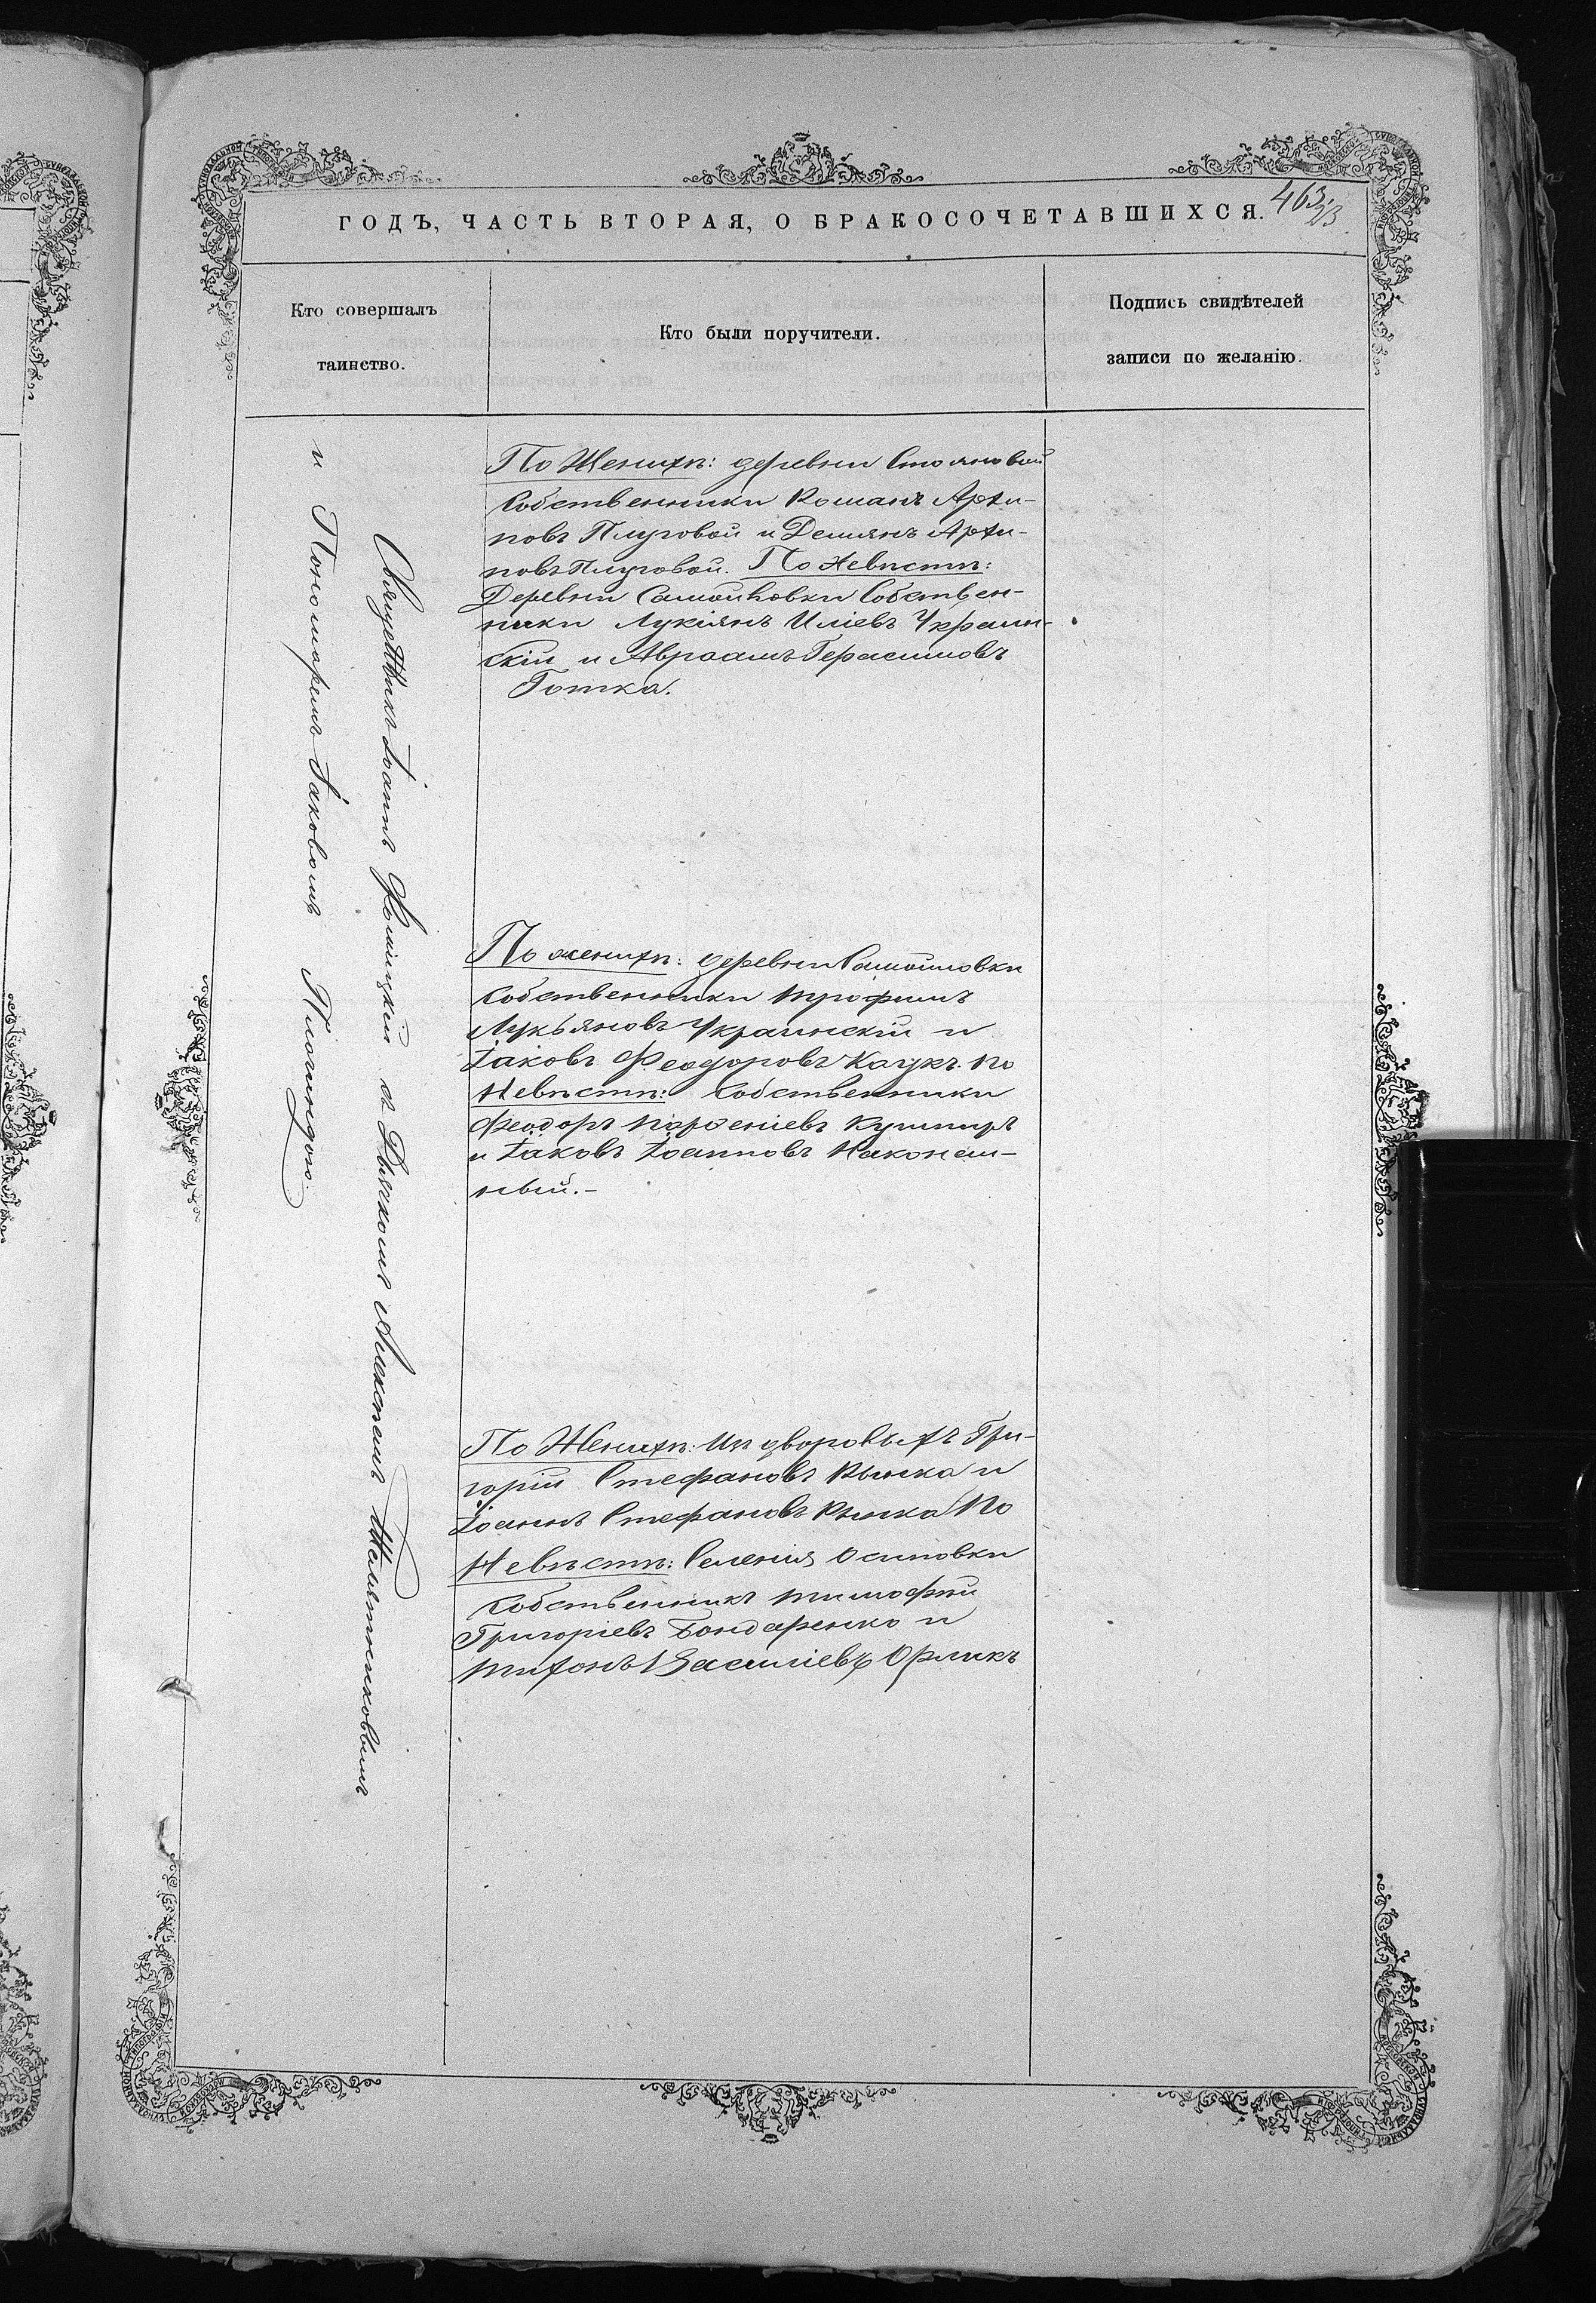 463/13
ГОДЪ, ЧАСТЬ ВТОРАЯ, О БРАКОСОЧЕТАВШИХСЯ.
Кто совершалъ
таинство.
Кто были поручители.
Подпись свидѣтелей
записи по желанію.
Священникъ Іоаннъ съ Дьякомъ Алексѣемъ
и Пономаремъ Іаковомъ
По Женихѣ: деревни Стояновой
Собственники Романъ Архи-
повъ Плуговой и Демянъ Архи-
повъ Плуговой. По Невѣстѣ:
Деревни Самойловки Собствен-
ники Лукіянъ Иліевъ Украин-
скій и Авраамъ Герасимовъ
Готка.
По женихѣ: деревни Самойловки
Собственники Трофимъ
Лукьяновъ Украинскій и
Іаковъ Феодоровъ Кацукъ. По
Невѣстѣ: Собственники
Феодоръ Парѳеніевъ Кушниръ
и Іаковъ Іоанновъ Наконеш-
ный.-
По Женихѣ: Изъ дворовыхъ Гри-
горій Стефановъ и
Іоаннъ Стефановъ По
Невѣстѣ: Селенія Осиповки
Собственникъ Тимофѣй
Григоріевъ Бондаренко и
Тихонъ Василіевъ Орликъ